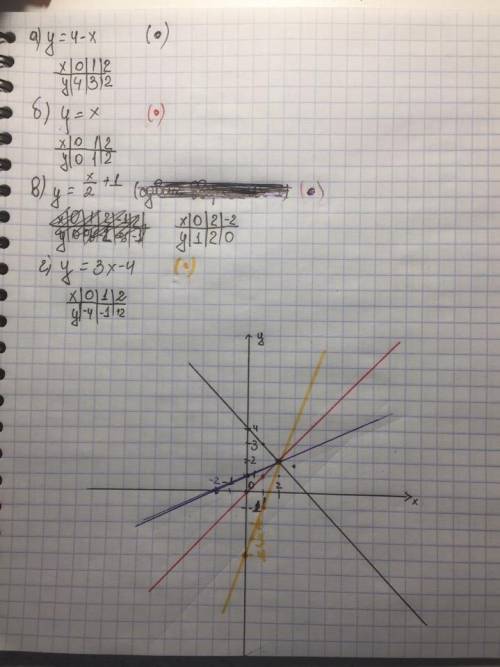 а) y = 4-x (•)
x | 0 | 1 | 2
y | 4 | 3 | 2
б) y = x (•)
x | 0 | 1 | 2
y | 0 | 1 | 2
в) y = x/2 + 1 (•)
x | 0 | 2 | -2
y | 1 | 2 | 0
г) y = 3x-4 (•)
x | 0 | 1 | 2
y | -4 | -1 | +2
y
4
3
2
1
-2 -1 0 2 x
-1